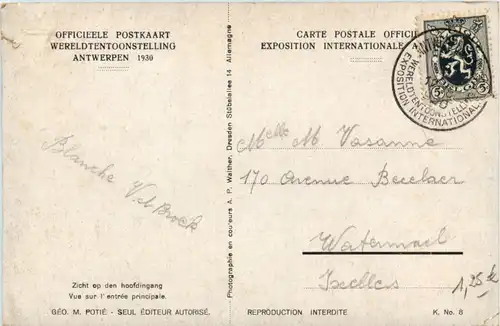 OFFICIEELE POSTKAART
WERELDTENTOONSTELLING
ANTWERPEN 1930
CARTE POSTALE OFFICI
EXPOSITION INTERNATIONALE
WERELDTENTOONSTELLING
EXPOSITION INTERNATIONALE
5 5
Blanche V.d. Broek
Melle M Vasanne
170 Avenue Beeckaer
Watermael
Ixelles
1,25
Photographie en couleurs A. P. Walther, Dresden Stübelallee 14 Allemagne
Zicht op den hoofdingang
Vue sur l'entrée principale.
GÉO. M. POTIÉ - SEUL ÉDITEUR AUTORISÉ.
REPRODUCTION INTERDITE
K. No. 8